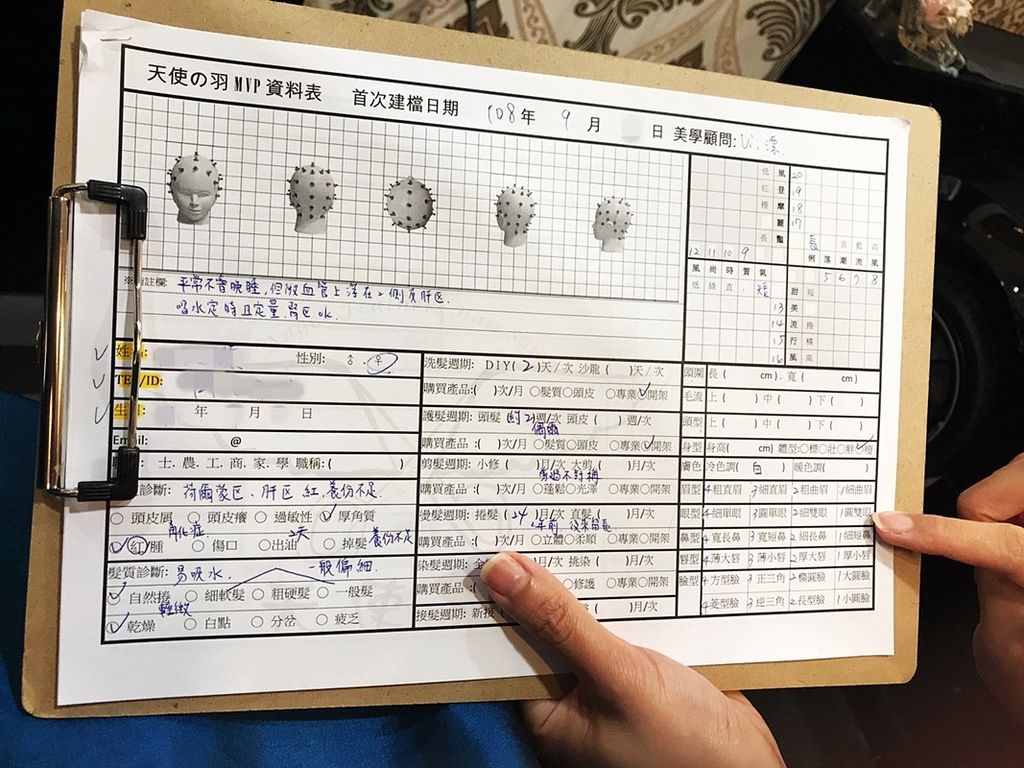 天使の羽 MVP 資料表 首次建檔日期 108年 9 月 日 美學顧問: Vi.
低 風 20
紅 登 19
捲 摩 18
麗 17
長 豔
長 直 藍 高
俐 落 潮 流 風
12 11 10 9 5 6 7 8
風 尚 時 質 氣
低 直 短 甜 短
13 美
14 流 捲
15 行 橘
16 風 高
註欄: 平常不會晚睡,但微血管上浮在2側及肝区.
喝水定時且定量.腎区ok.
姓 : 性別: ♂ ♀
TE /ID:
生 : 年 月 日
Email: @
士.農.工.商.家.學 職稱:( )
診斷: 荷爾蒙区、肝区 紅.養份不足.
頭皮屑 頭皮癢 過敏性 厚角質
角化症 2天
紅/腫 傷口 出油 掉髮 養份不足
髮質診斷: 易吸水. 一般偏細
自然捲 細軟髮 粗硬髮 一般髮
輕微
乾燥 白點 分岔 疲乏
洗髮週期: DIY( 2 )天/次 沙龍( )天/次
購買產品:( )次/月 髮質 頭皮 專業 開架
護髮週期: 頭髮( 2)週/次 頭皮( )週/次
偶爾
購買產品:( )次/月 髮質 頭皮 專業 開架
剪髮週期: 小修( )月/次 大剪( )月/次
剪過不對稱
購買產品:( )次/月 蓬鬆 光澤 專業 開架
燙髮週期: 捲髮(24)月/次 直髮( )月/次
2年前
購買產品:( )次/月 立體 柔順 專業 開架
染髮週期: 全 )月/次 挑染( )月/次
購買產品:( 修護 專業 開架
接髮週期: 新接 )月/次
頭圍 長( cm).寬( cm)
毛流 上( )中( )下( )
頭型 上( )中( )下( )
身型 身高( cm) 體型: 標 壯 胖 瘦
膚色 冷色調( 白 ) 暖色調( )
眉型 4粗直眉 3細直眉 2粗曲眉 1細曲眉
眼型 4細單眼 3圓單眼 2細雙眼 1圓雙眼
鼻型 4寬長鼻 3寬短鼻 2細長鼻 1細短鼻
唇型 4薄大唇 3薄小唇 2厚大唇 1厚小唇
臉型 4方型臉 3正三角 2橢圓臉 1大圓臉
4菱型臉 3逆三角 2長型臉 1小圓臉